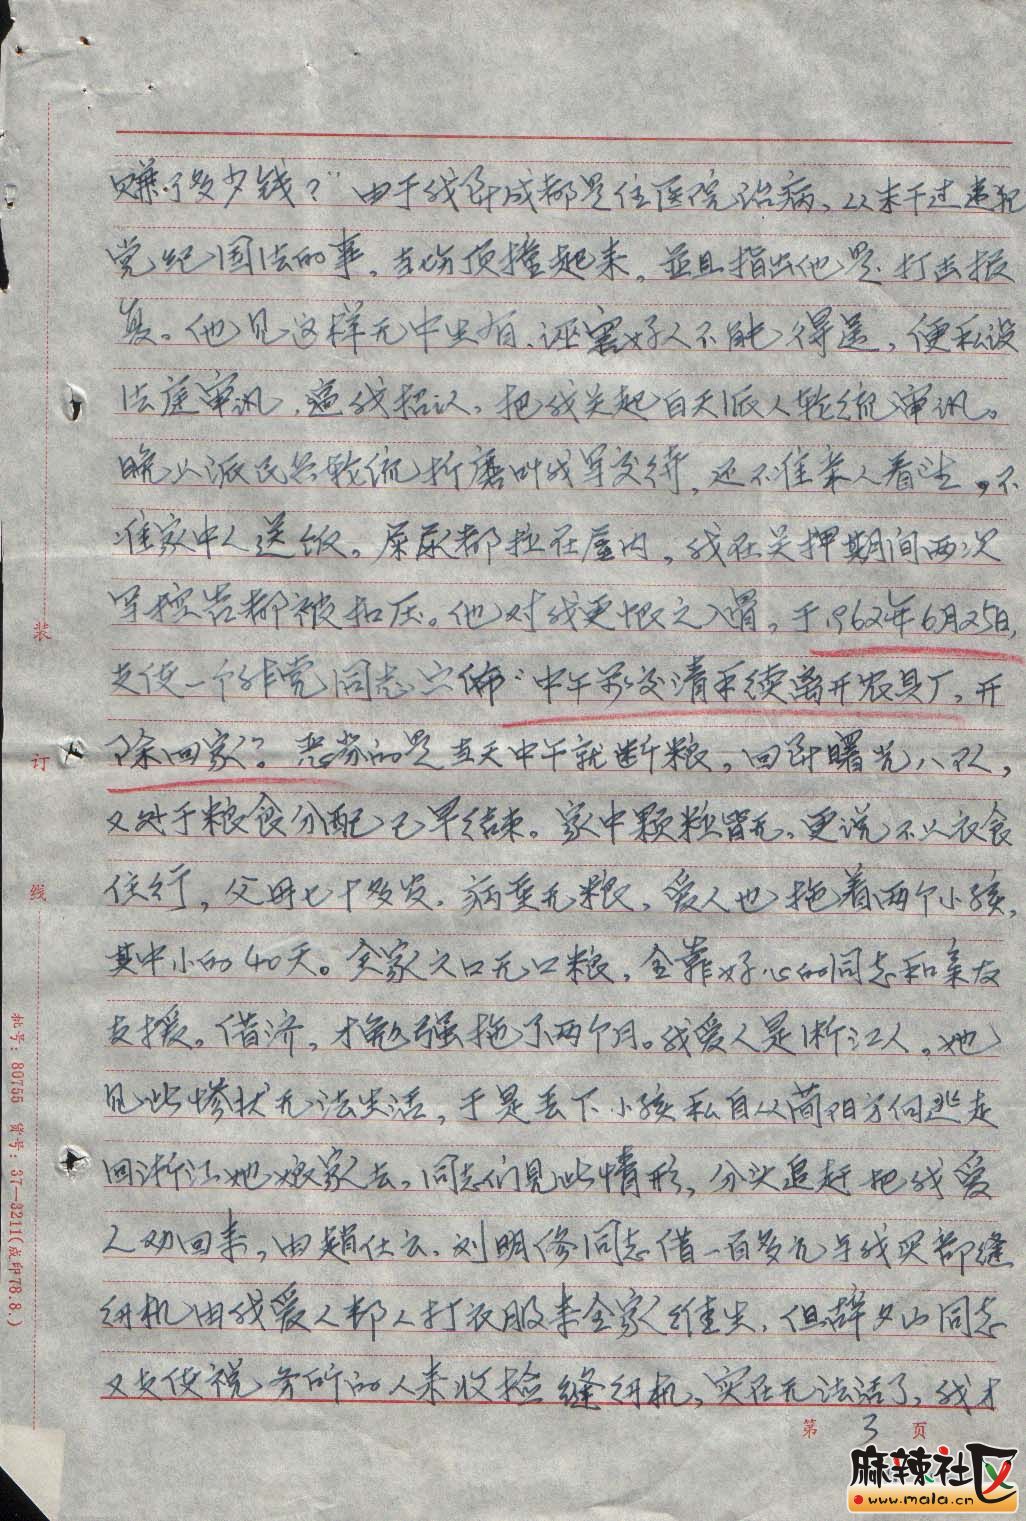 赚了多少钱？”由于我到成都是住医院治病，从未干过违犯
党纪国法的事，当场顶撞起来，並且指出他是打击报
复。他见这样无中生有、诬害好人不能得逞，便私设
法庭审讯，逼我招认，把我关起白天派人轮流审讯。
晚上派民兵轮流折磨叫我写交待，还不准亲人看望，不
准家中人送饭。屎尿都拉在屋内，我在关押期间两次
写控告都被扣压。他对我更恨之入骨，于1962年6月25日，
支使一个非党同志宣佈“中午以交清手续离开农具厂，开
除回家”。恶劣的是当天中午就断粮，回到曙光八队，
又处于粮食分配已早结束。家中颗粒皆无，更说不上衣食
住行，父母七十多岁，病重无粮，爱人也拖着两个小孩，
其中小的40天。全家六口无口粮，全靠好心的同志和亲友
支援。借济，才勉强拖了两个月。我爱人是浙江人，她
见此惨状无法生活，于是丢下小孩私自从简阳方向逃走
回浙江她娘家去。同志们见此情形，分头追赶把我爱
人劝回来，由赵仕云、刘明修同志借一百多元与我买部缝
纫机由我爱人帮人打衣服来全家维生，但薛夕山同志
又支使税务所的人来收捡缝纫机，实在无法活了，我才
第 3 页
装
订
线
批号：80755 货号：37—3211（成印78.8.）
麻辣社区
www.mala.cn